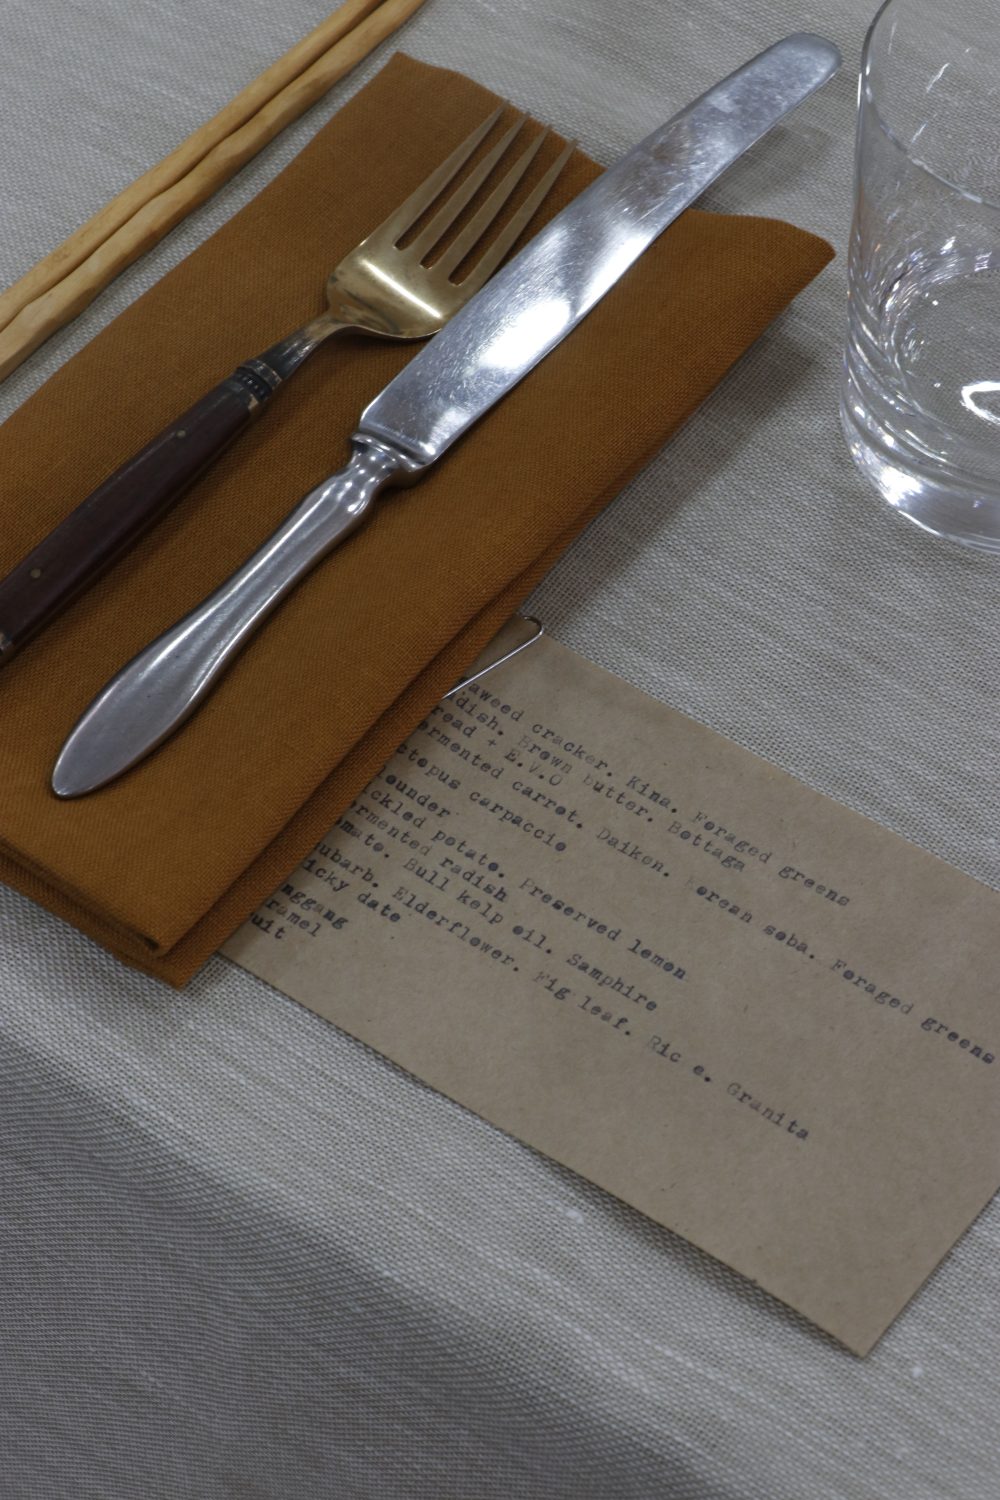 aweed cracker. Kina. Foraged greens
dish. Brown butter. Bottaga
read + E.V.O
ermented carrot. Daikon. Korean soba. Foraged greens
ctopus carpaccio
ounder
ickled potato. Preserved lemon
ermented radish
mato. Bull kelp oil. Samphire
ubarb. Elderflower. Fig leaf. Ric e. Granita
icky date
nggang
ramel
uit